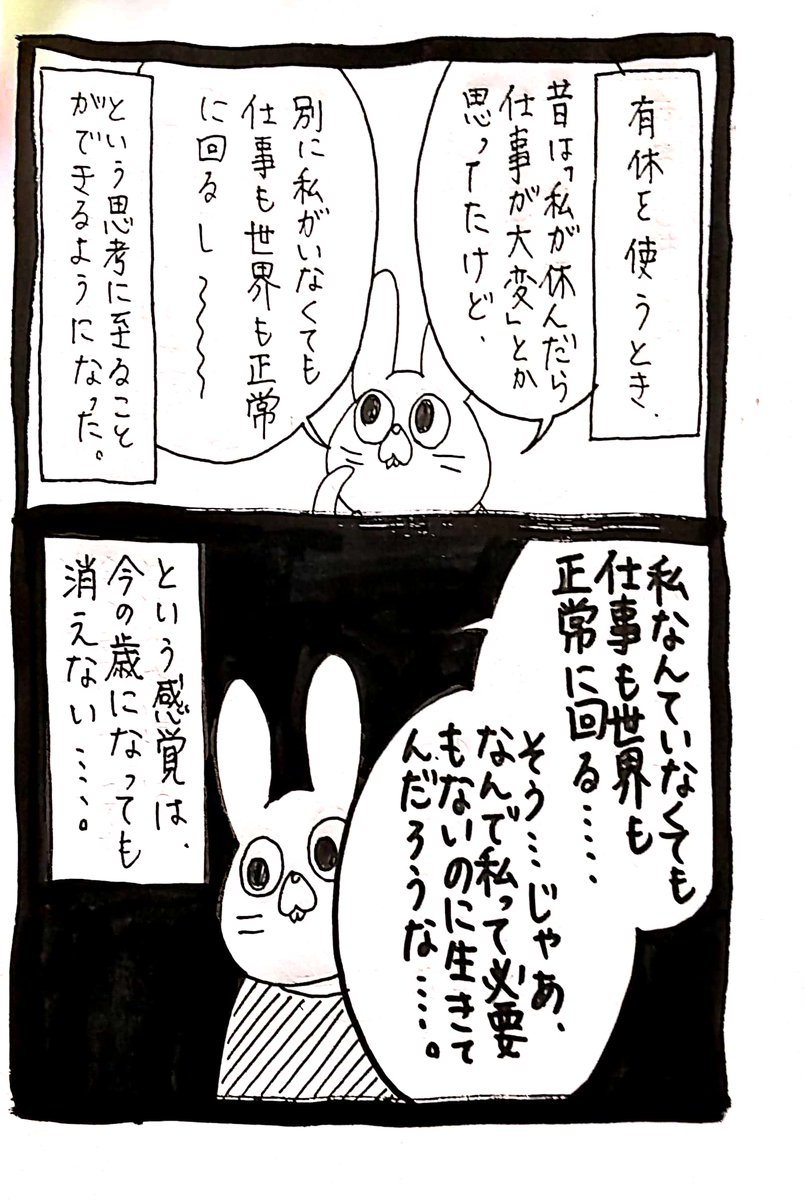 有休を使うとき、
昔は「私が休んだら
仕事が大変」とか
思ってたけど、
別に私がいなくても
仕事も世界も正常
に回るし〜〜〜
という思考に至ること
ができるようになった。
私なんていなくても
仕事も世界も
正常に回る……
そう…じゃあ、
なんで私って必要
もないのに生きて
んだろうな……。
という感覚は、
今の歳になっても
消えない……。